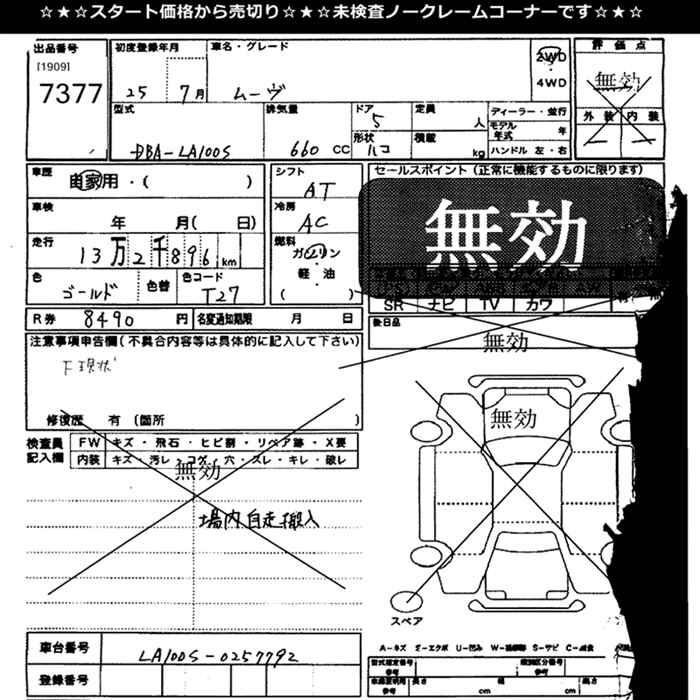 ☆★☆スタート価格から売切り☆★☆未検査ノークレームコーナーです☆★☆
出品番号 初度登録年月 車名・グレード 評価点
[1909] 2WD
7377 25 7月 ムーヴ 4WD 無効
型式 排気量 ドア 定員 ディーラー・並行 外装 内装
5 人 モデル年式 年
DBA-LA100S 660 CC 形状 ハコ 積載 kg ハンドル 左・右
車歴 シフト セールスポイント(正常に機能するものに限ります)
自家用・( ) AT
車検 冷房 無効
年 月( 日) AC
走行 燃料
13万2千896km ガソリン
・
色 色替 色コード 軽・油
ゴールド T27 ( ) SR ナビ TV カワ
R券 8490 円 名変通知期限 月 日 後日品
注意事項申告欄(不具合内容等は具体的に記入して下さい) 無効
下現状
修復歴 有 (箇所 ) 無効
検査員 FW キズ・飛石・ヒビ割・リペア跡・X要
記入欄 内装 キズ・汚レ・コゲ・穴・スレ・キレ・破レ
無効
場内自走搬入
スペア
車台番号 LA100S-0257792
A-キズ E-エクボ U-凹み S-サビ
登録番号
長さ cm 幅 cm 高さ